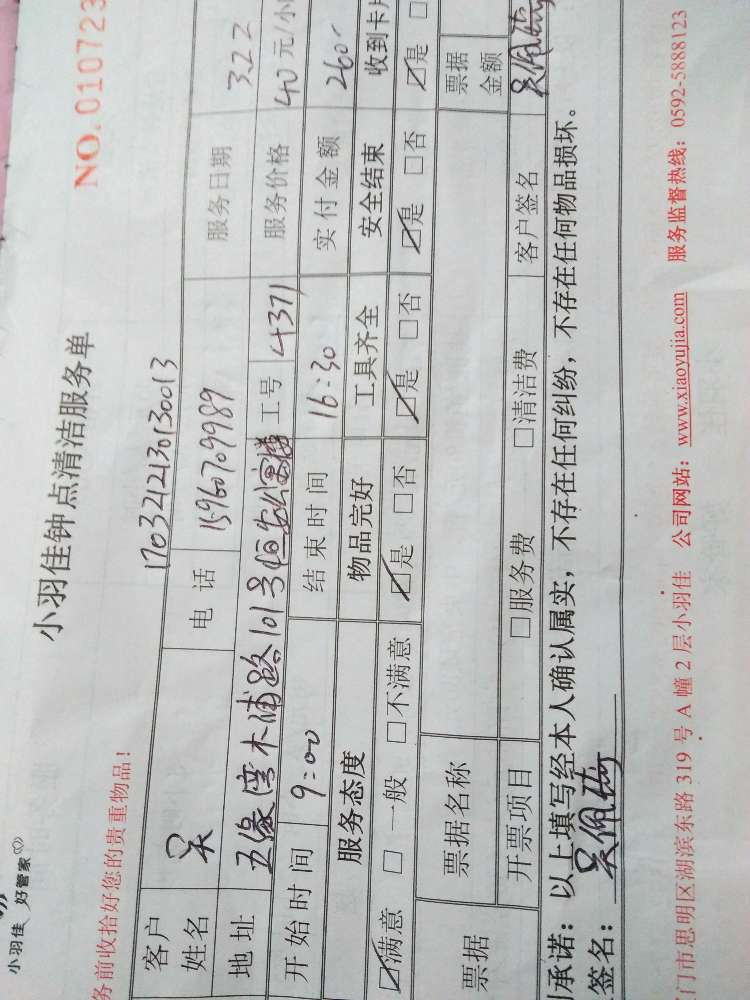 小羽佳 好管家
小羽佳钟点清洁服务单
NO. 010723
务前收拾好您的贵重物品!
1703212130130013
客户姓名 吴 电话 15960709989 服务日期 3.22
地址 五缘湾木浦路101号恒安 工号 4371 服务价格 40元/小
开始时间 9:00 结束时间 16:30 实付金额 260-
服务态度 物品完好 工具齐全 安全结束 收到卡片
☑满意 □一般 □不满意 ☑是 □否 ☑是 □否 ☑是 □否 ☑是 □
票据 票据名称 票据金额
开票项目 □服务费 □清洁费 客户签名 吴佩
承诺:以上填写经本人确认属实,不存在任何纠纷,不存在任何物品损坏。
签名:吴佩
门市思明区湖滨东路 319 号 A 幢 2 层小羽佳 公司网站:www.xiaoyujia.com 服务监督热线:0592-5888123